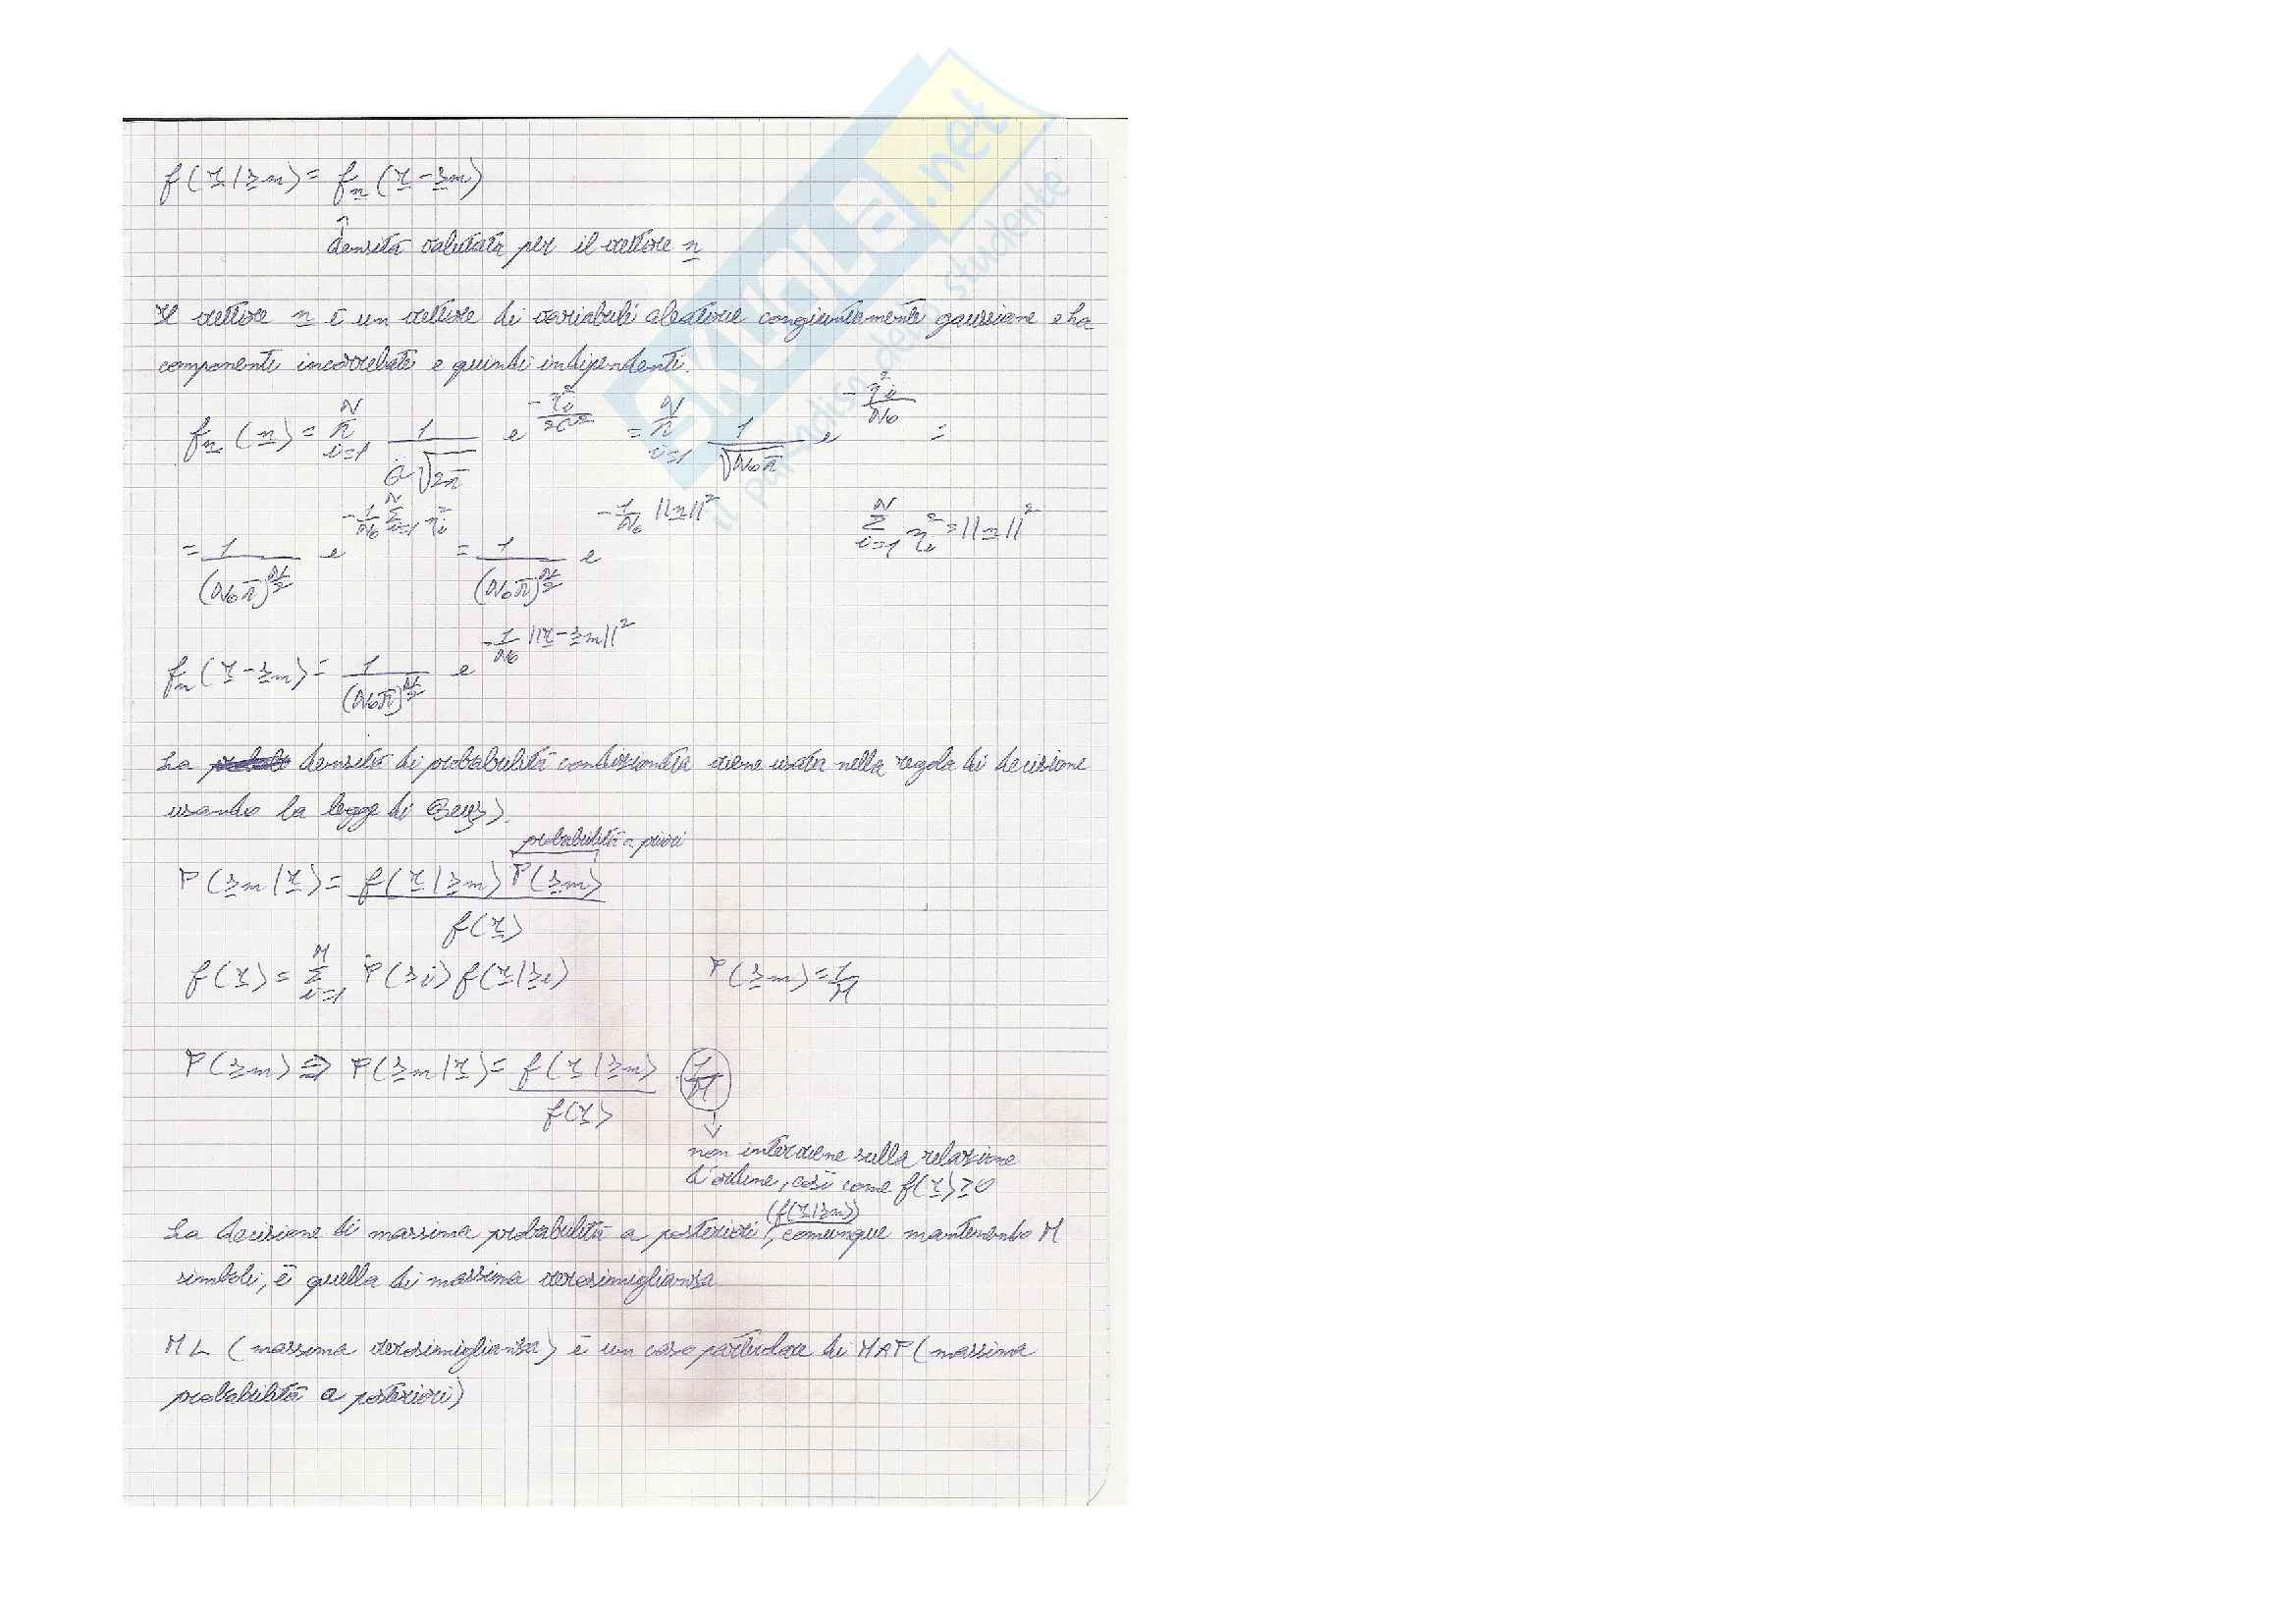 f(r|sm) = fn(r-sm)
↑
densità valutata per il vettore n
Il vettore n è un vettore di variabili aleatorie congiuntamente gaussiane e ha
componenti incorrelati e quindi indipendenti.
fn(n) = π_{i=1}^{N} 1/(σ√2π) e^{-ni²/2σ²} = π_{i=1}^{N} 1/√(N0π) e^{-ni²/N0} =
= 1/(N0π)^{N/2} e^{-1/N0 Σ_{i=1}^{N} ni²} = 1/(N0π)^{N/2} e^{-1/N0 ||n||²} Σ_{i=1}^{N} ni² = ||n||²
fn(r-sm) = 1/(N0π)^{N/2} e^{-1/N0 ||r-sm||²}
La densità di probabilità condizionata viene usata nella regola di decisione
usando la legge di
probabilità a priori
P(sm|r) = f(r|sm) P(sm) / f(r)
f(r) = Σ_{i=1}^{M} P(si) f(r|si) P(sm) = 1/M
P(sm) ⇒ P(sm|r) = f(r|sm)/f(r) · 1/M
↓
non interviene sulla relazione
d'ordine, così come f(r) ≥ 0
(f(r|sm))
La decisione di massima probabilità a posteriori, comunque mantenendo M
simboli, è quella di massima verosimiglianza
ML (massima verosimiglianza) è un caso particolare di MAP (massima
probabilità a posteriori)
SKUOLA.net
il paradiso dello studente